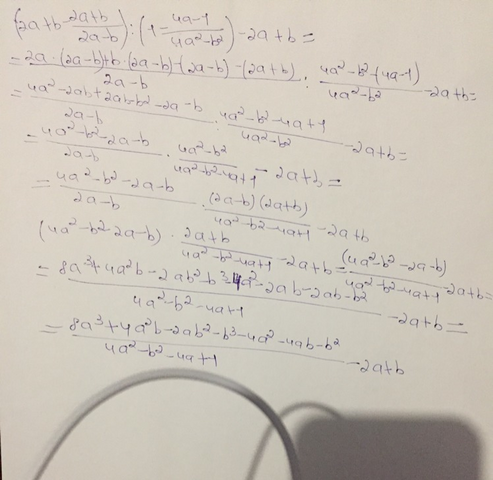 (2a+b-\frac{2a+b}{2a-b}):(1-\frac{4a-1}{4a²-b²})-2a+b=
=\frac{2a·(2a-b)+b·(2a-b)-(2a-b)-(2a+b)}{2a-b}:\frac{4a²-b²-(4a-1)}{4a²-b²}-2a+b=
=\frac{4a²-2ab+2ab-b²-2a-b}{2a-b}:\frac{4a²-b²-4a+1}{4a²-b²}-2a+b=
=\frac{4a²-b²-2a-b}{2a-b}·\frac{4a²-b²}{4a²-b²-4a+1}-2a+b=
=\frac{4a²-b²-2a-b}{2a-b}·\frac{(2a-b)(2a+b)}{4a²-b²-4a+1}-2a+b
(4a²-b²-2a-b)·\frac{2a+b}{4a²-b²-4a+1}-2a+b=\frac{(4a²-b²-2a-b)}{4a²-b²-4a+1}-2a+b=
=\frac{8a³+4a²b-2ab²-b³-4a²-2ab-2ab-b²}{4a²-b²-4a+1}-2a+b=
=\frac{8a³+4a²b-2ab²-b³-4a²-4ab-b²}{4a²-b²-4a+1}-2a+b